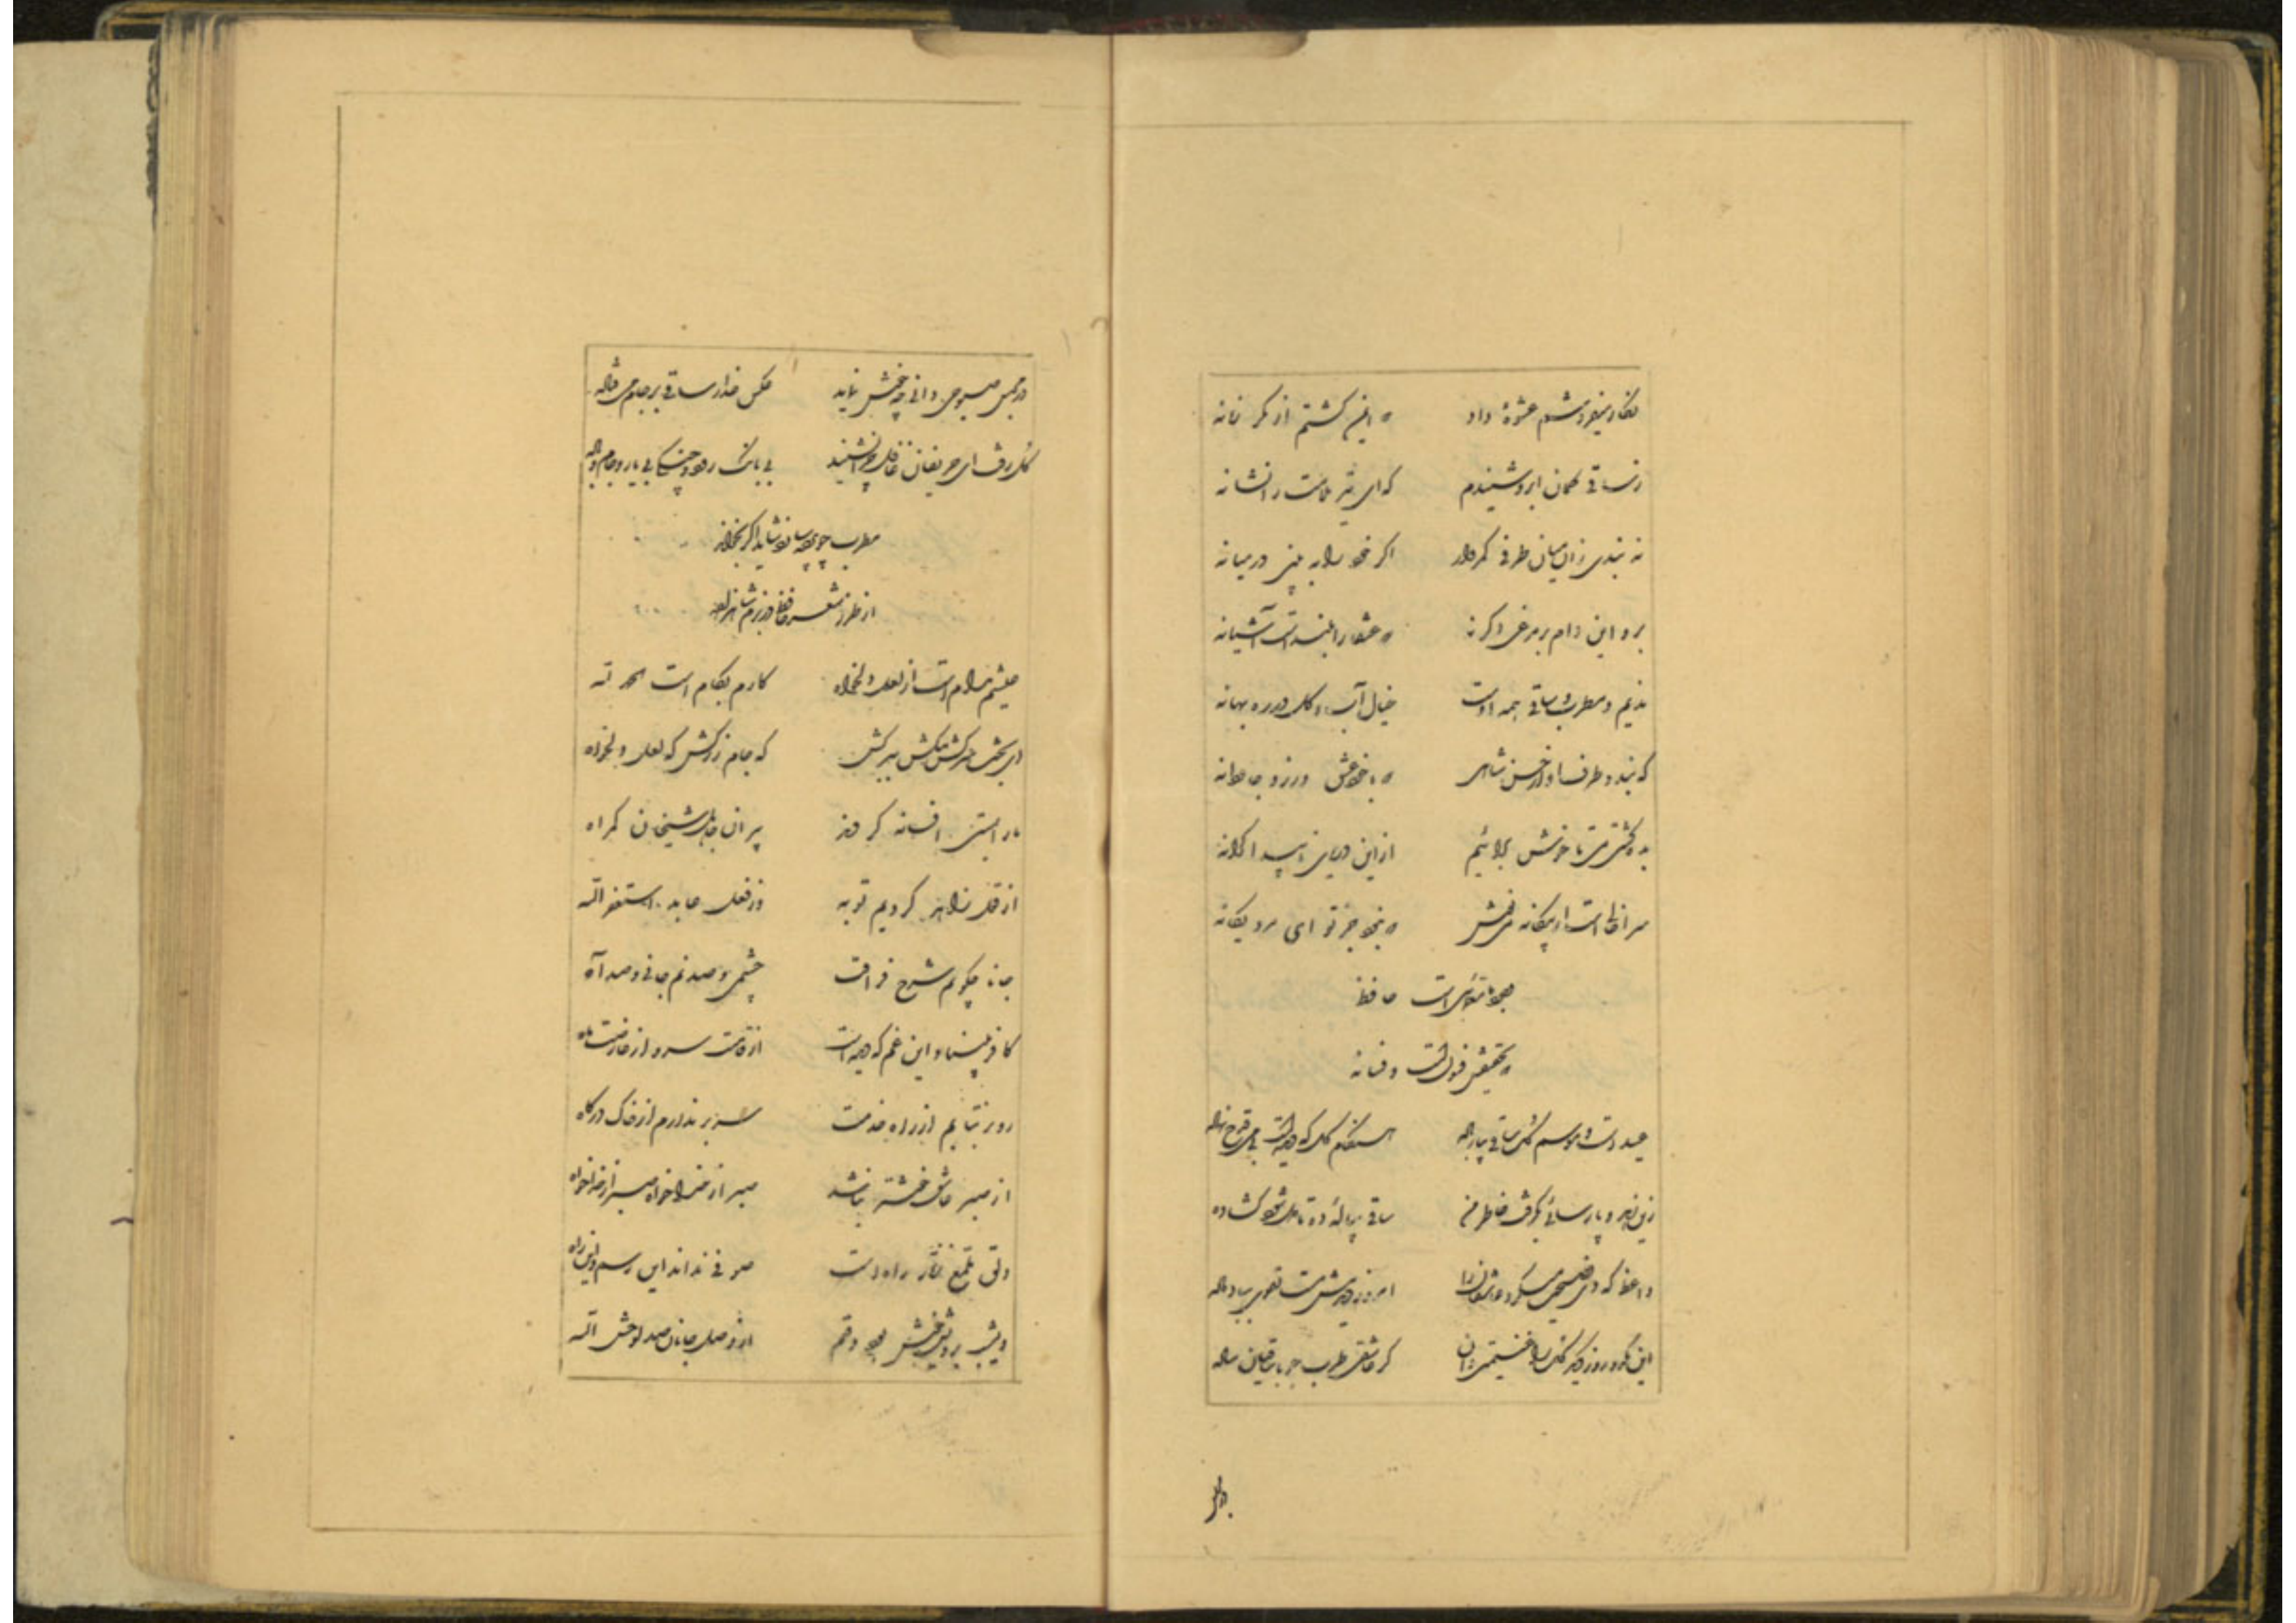 نکار میفروشم عشوهٔ داد که ایمن کشتم از مکر زمانه
ز ساقی کمان ابرو شنیدم که ای تیر ملامت را نشانه
نه بندی زان میان طرفی کمروار اکر خود را به بینی در میانه
برو این دام بر مرغی دکر نه که عنقا را بلند است آشیانه
ندیم و مطرب و ساقی همه اوست خیال آب و کل در ره بهانه
که بندد طرف از حسن شاهی که با خود عشق ورزد جاودانه
بده کشتی می تا خوش برائیم از این دریای ناپیدا کرانه
سرا خالیست از بیکانه می نوش که نبود جز تو ای مرد یکانه
وجود ما معمائیست حافظ
که تحقیقش فسونست و فسانه
عید است و موسم کل ساقی بیار باده هنکام کل که دیده است بی می قدح نهاده
زین زهد و پارسائی بکرفت خاطر من ساقی پیالهٔ ده تا دل شود کشاده
واعظ که دی نصیحت میکرد عاشقان را امروز دیدمش مست تقوی بباد داده
این یکدو روز دیکر کل را غنیمتی دان کر عاشقی طرب جو با ساقیان ساده
در مجلس صبوحی دانی چه خوش نماید عکس عذار ساقی بر جام می فتاده
کل رفت ای حریفان غافل چرا نشینید بی بانک رود و چنک بی یار و جام و باده
مطرب چو پرده سازد شاید اکر بخواند
از طرز شعر حافظ در بزم شاهزاده
عیشم مدام است از لعل دلخواه کارم بکام است الحمد لله
ای بخت سرکش تنکش ببر کش که جام زرکش که لعل دلخواه
ما را بمستی افسانه کردند پیران جاهل شیخان کمراه
از قول زاهد کردیم توبه وز فعل عابد استغفر الله
جانا چکویم شرح فراقت چشمی و صد نم جانی و صد آه
کافر مبیناد این غم که دیده است از قامتت سرو از عارضت ماه
رو بر نتابم از راه خدمت سر بر ندارم از خاک درکاه
از صبر عاشق خوشتر نباشد صبر از خدا خواه صبر از خدا خواه
دلق ملمع زنار راه است صوفی نداند این رسم و این راه
دیشب برویش خوش بود وقتم از وصل جانان صد لوحش الله